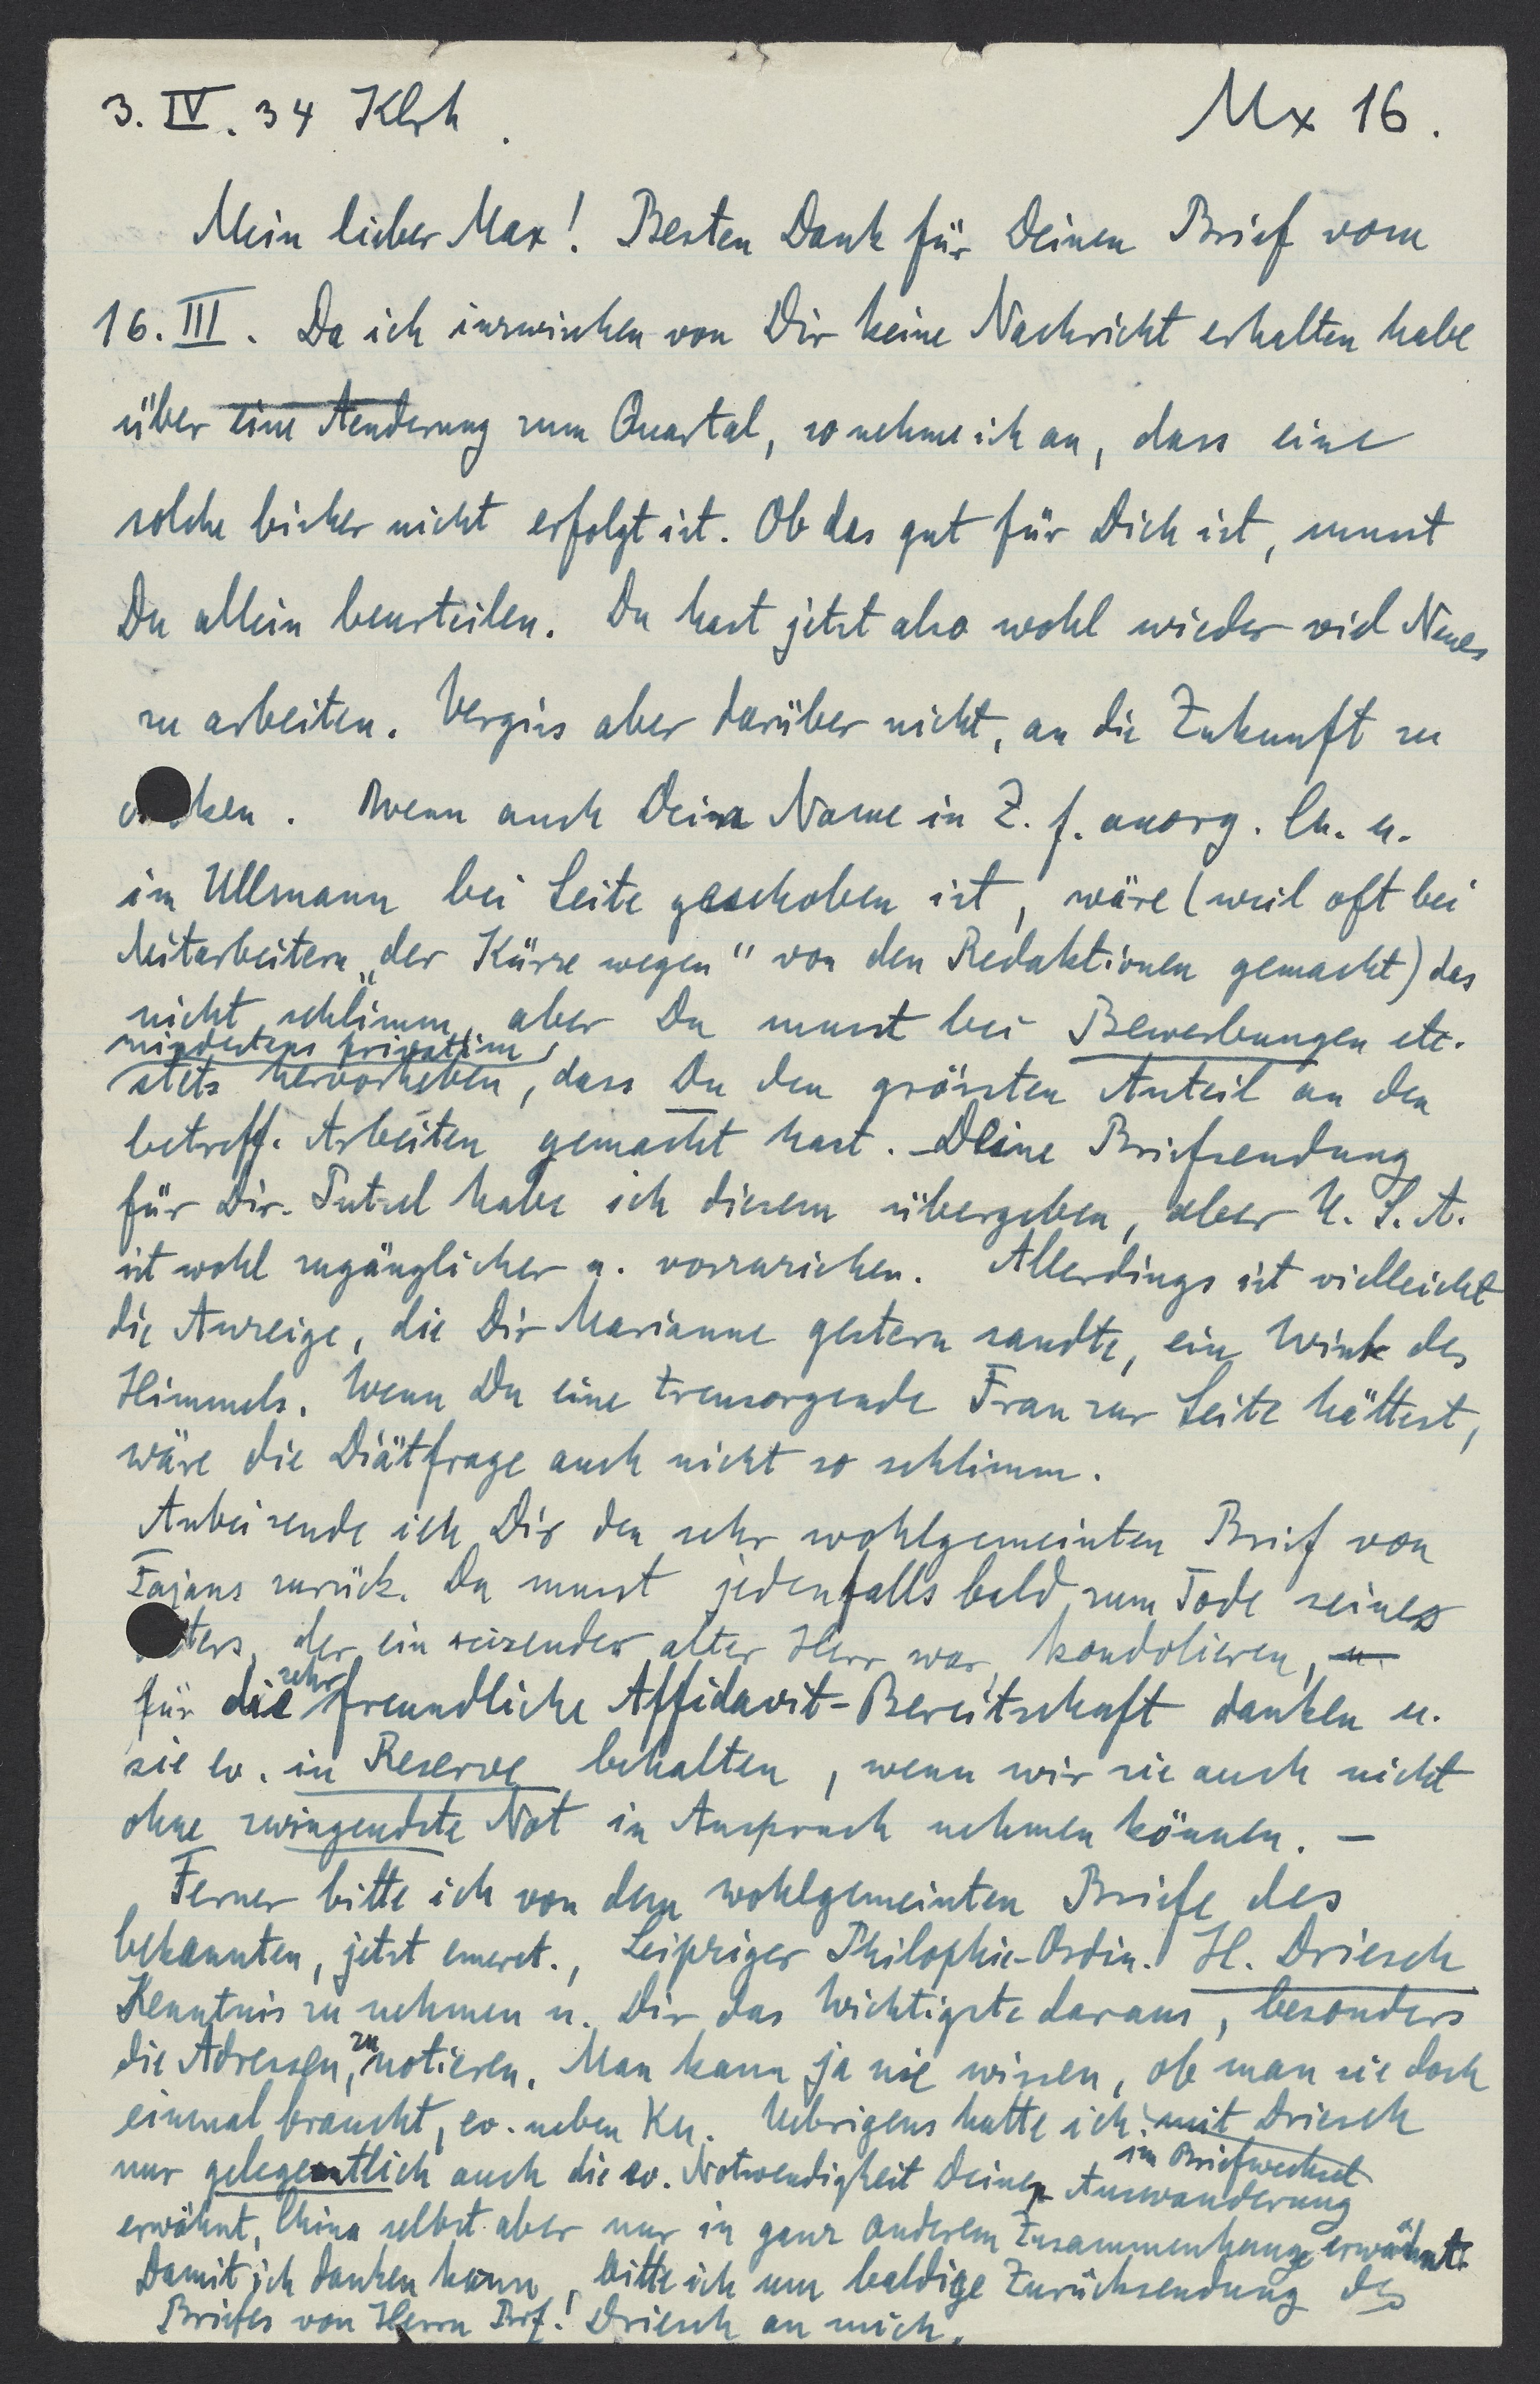 3. IV. 34 Klrh. Mx 16.
Mein lieber Max! Besten Dank für Deinen Brief vom
16. III. Da ich inzwischen von Dir keine Nachricht erhalten habe
über eine Aenderung zum Quartal, so nehme ich an, dass eine
solche bisher nicht erfolgt ist. Ob das gut für Dich ist, musst
Du allein beurteilen. Du hast jetzt also wohl wieder viel Neues
zu arbeiten. Vergiss aber darüber nicht, an die Zukunft zu
ken. Wenn auch Dein Name in Z. f. anorg. Ch. u.
im Ullmann bei Seite geschoben ist, wäre (weil oft bei
Mitarbeitern „der Kürze wegen“ von den Redaktionen gemacht) das
nicht schlimm, aber Du musst bei Bewerbungen etc.
mindestens privatim
stets hervorheben, dass Du den grössten Anteil an den
betreff. Arbeiten gemacht hast. – Deine Briefsendung
für Dir. Putzel habe ich diesem übergeben, aber U.S.A.
ist wohl zugänglicher u. vorzuziehen. Allerdings ist vielleicht
die Anzeige, die Dir Marianne gestern sandte, ein Wink des
Himmels. Wenn Du eine treusorgende Frau zur Seite hättest,
wäre die Diätfrage auch nicht so schlimm.
Anbei sende ich Dir den sehr wohlgemeinten Brief von
Fajans zurück. Du musst jedenfalls bald zum Tode seines
ters, der ein reizender alter Herr war, kondolieren, u.
für die sehr freundliche Affidavit-Bereitschaft danken u.
sie ev. in Reserve behalten, wenn wir sie auch nicht
ohne zwingendste Not in Anspruch nehmen können. –
Ferner bitte ich von dem wohlgemeinten Briefe des
bekannten, jetzt emeret., Leipziger Philophie-Ordin. H. Driesch
Kenntnis zu nehmen u. Dir das Wichtigste daraus, besonders
die Adressen, zu notieren. Man kann ja nie wissen, ob man sie doch
einmal braucht, ev. neben Ku. Uebrigens hatte ich mit Driesch
im Briefwechsel
nur gelegentlich auch die ev. Notwendigkeit Deiner Auswanderung
erwähnt, China selbst aber nur in ganz anderem Zusammenhange erwähnt.
Damit ich danken kann, bitte ich um baldige Zurücksendung des
Briefes von Herrn Prf. Driesch an mich.